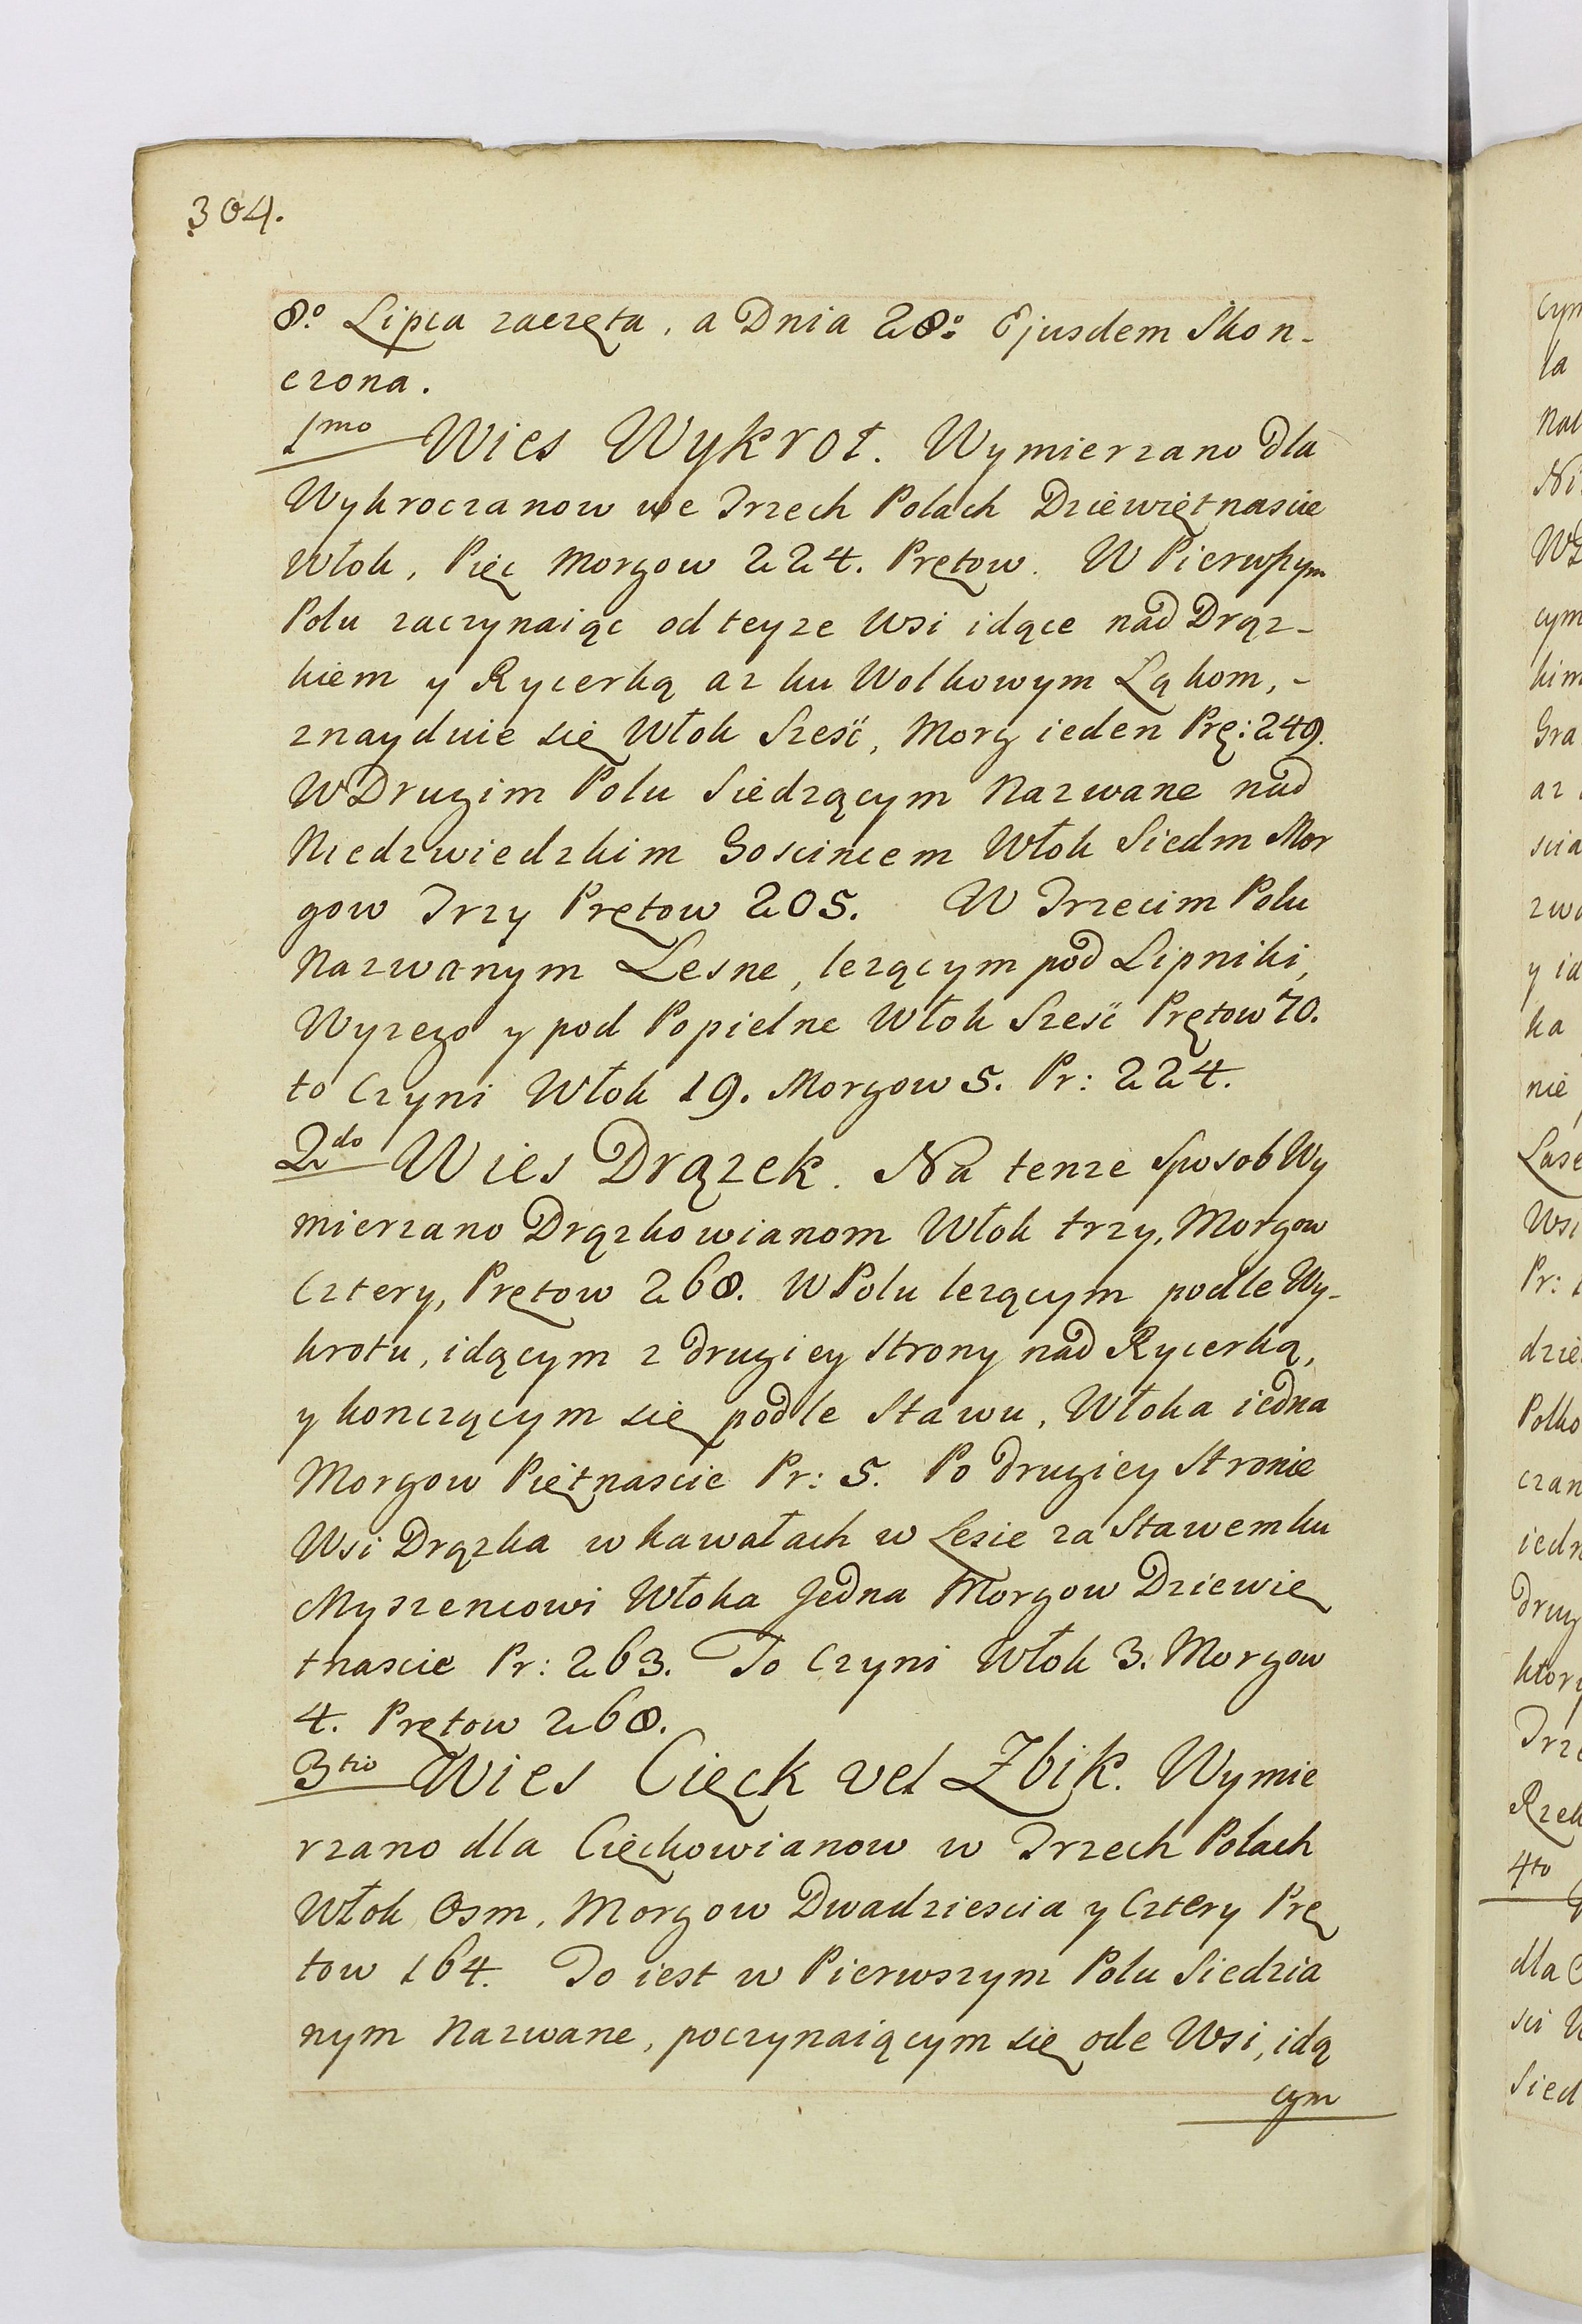 304.
8º Lipca zaczęta, a Dnia 28º Ejusdem Skon-
czona.
1mo Wies Wykrot. Wymierzano dla
Wykroczanow we Trzech Polach Dziewiętnascie
Włok, Pięc Morgow 224. Prętow. W Pierwszym
Polu zaczynaiąc od teyze Wsi idące nad Drąz-
kiem y Rycerką az ku Wolkowym Łąkom, -
znayduie się Włok Szesć, Morg ieden Prę: 249.
W Drugim Polu Siedzącym Nazwane nad
Niedzwiedzkim Goscincem Włok Siedm Mor
gow Trzy Prętow 205. W Trzecim Polu
Nazwanym Lesne, lezącym pod Lipniki,
Wyzego y pod Popielne Włok Szesć Prętow 70.
to Czyni Włok 19. Morgow 5. Pr: 224.
2do Wies Drązek. Na tenze Sposob Wy
mierzano Drązkowianom Włok trzy, Morgow
Cztery, Prętow 268. W Polu lezącym podle Wy-
krotu, idącym z drugiey Strony nad Rycerką,
y konczącym się podle Stawu, Włoka iedna
Morgow Piętnascie Pr: 5. Po drugiey Stronie
Wsi Drązka w kawałach w Lesie za Stawem ku
Myszencowi Włoka Jedna Morgow Dziewię
tnascie Pr: 263. To Czyni Włok 3. Morgow
4. Prętow 268.
3tio Wies Cięck vel Zbik. Wymie
rzano dla Cięckowianow w Trzech Polach
Włok Osm, Morgow Dwadziescia y Cztery Prę
tow 164. To iest w Pierwszym Polu Siedzia
nym Nazwane, poczynaiącym się ode Wsi, idą
cym